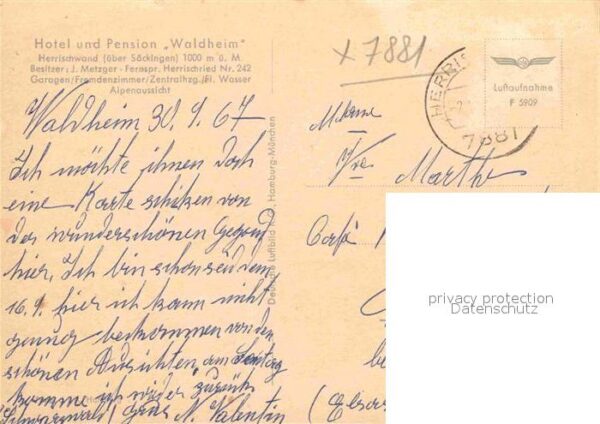 Hotel und Pension „Waldheim"
Herrischwand (über Säckingen) 1000 m ü. M.
Besitzer: J. Metzger - Fernspr. Herrischried Nr. 242
Garagen/Fremdenzimmer/Zentralhzg./fl. Wasser
Alpenaussicht
Waldheim 30.9.67
Ich möchte ihnen doch
eine Karte schiken von
der wunderschönen Gegend
hier, Ich bin schon seid dem
16.9. hier ich kann nicht
genug bekommen von den
schönen Aussichten, am Sontag
komme ich wieder zurück
(Schwarzwald) gruss N. Valentin
Deutsche Luftbild Hamburg-München
x 7881
HERRIS
7881
Luftaufnahme
F 5909
Marthe
Café
(Elsas
privacy protection
Datenschutz